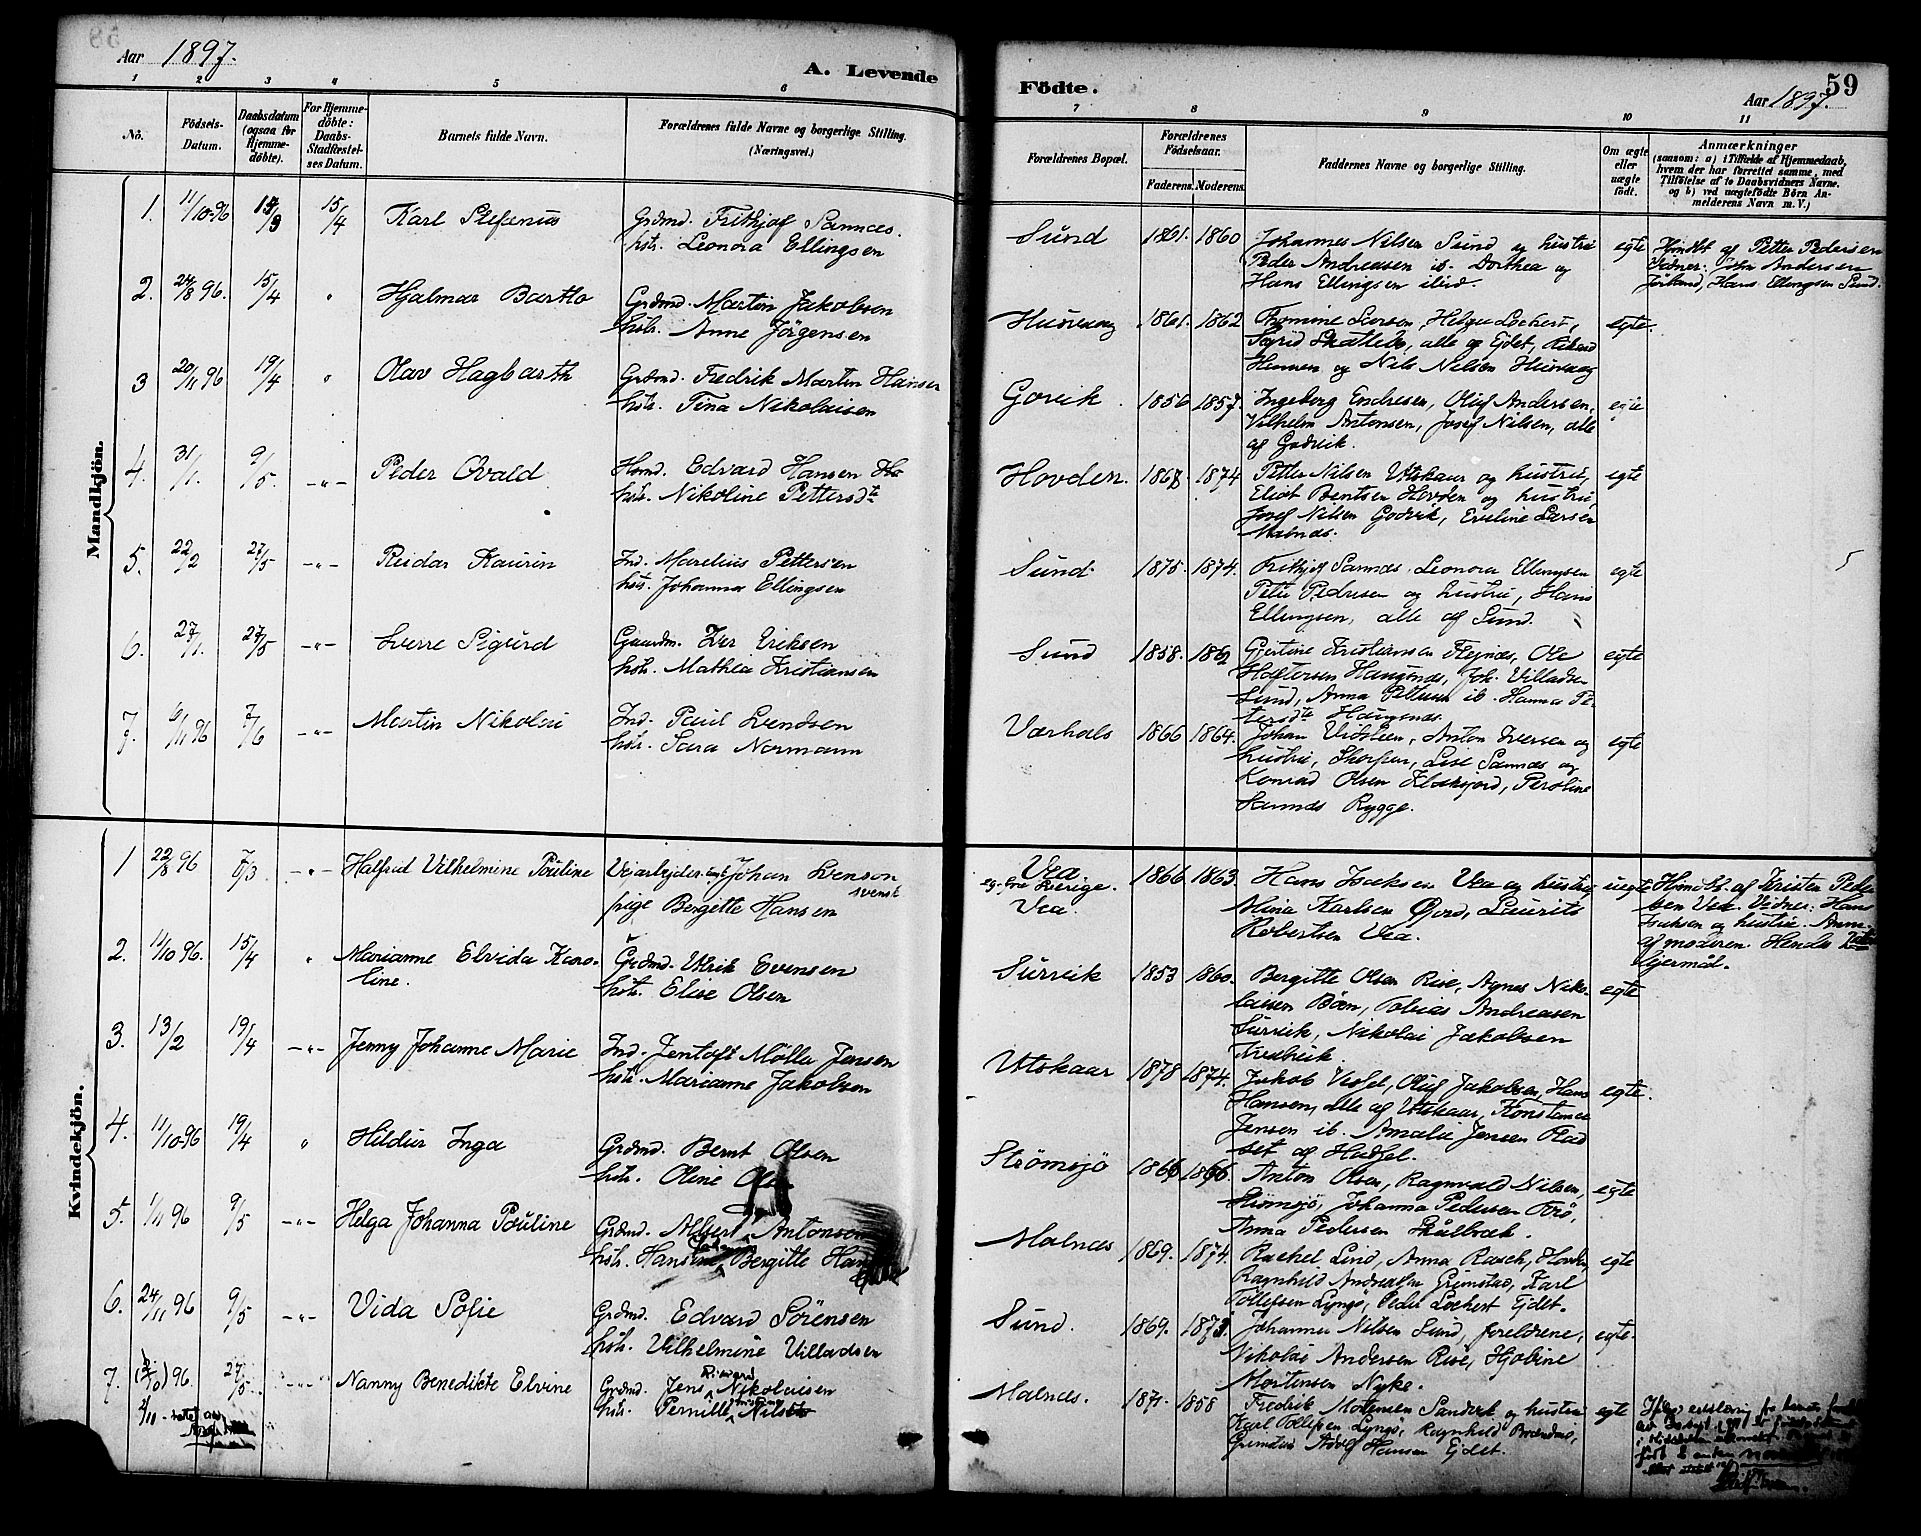 Aar 1897.
A. Levende
Födte.
59
Aar 1897.
1 2 3 4 5 6 7 8 9 10 11
Nô.
Födsels-
Datum.
Daabsdatum
(ogsaa for
Hjemme-
döbte).
For Hjemme-
döbte:
Daabs-
Stadfæstel-
ses Datum.
Barnets fulde Navn.
Forældrenes fulde Navne og borgerlige Stilling.
(Næringsvei.)
Forældrenes Bopæl.
Forældrenes
Födselsaar.
Faderens. Moderens.
Faddernes Navne og borgerlige Stilling.
Om ægte
eller
uægte
födt.
Anmærkninger
(saasom: a) i Tilfælde af Hjemmedaab,
hvem der har forrettet samme, med
Tilföielse af to Daabsvidners Navne.
og b) ved uægtefödte Börn An-
melderens Navn m. V.)
Mandkjön.
1. 11/10-96 15/4 Karl Stefanus
Grdmd. Frithjof Sannæs.
hstr. Leonora Ellingsen
Sund 1861. 1860
Johannes Nilsen Sund og hustru
Peder Andreassen ib. Dorthea og
Hans Ellingsen ibid.
egte
Hmdbt af Petter Pedersen
Vidner: John Andersen
Hans Ellingsen Sund.
2. 24/8 96. 15/4 " Hjalmar Bartho
Grdmd. Martin Jakobsen
hstr. Anne Jörgensen
Husvaag 1861. 1862
Larsen, Helga Lochert,
Sigrid alle af Ejdet, Rikard
Hansen og Nils Nilsen Husvaag
egte.
3 20/11 96 19/4 " Olav Hagbarth
Grdmd. Fredrik Martin Hansen
hstr. Tina Nikolaisen
Govik 1856 1857.
Ingeborg Endresen, Oluf Andersen,
Vilhelm Antonsen, Josef Nilsen, alle
af Godvik.
egte
4. 31/1. 9/5. -"- Peder Ovald
Hmd. Edvard Hansen
hstr. Nikoline Pettersdt
Hovden. 1868 1874
Petter Nilsen Utskaar og hustru,
Eliot Bentsen Hovden og hustru,
Josef Nilsen Godvik, Eveline Larsen
Malnæs.
egte
5. 22/2 27/5 -"- Reidar Kaurin
Ind. Marelius Pettersen
hstr. Johanna Ellingsen
Sund 1875. 1874.
Frithjof Sannæs. Leonora Ellingsen
Peter Pedersen og hustru, Hans
Ellingsen, alle af Sund.
egte
5
6. 27/1. 27/5 -"- Sverre Sigurd
Gaardm. Iver Eriksen
hstr. Mathea Kristiansen
Sund 1858. 1862
Gjertine Kristiansen Fleynæs, Ole
Haftorsen Haugsnæs, Joh. Villadsen
Sund, Anna Pettersen ib. Hanna Pe-
tersdt Haugsnæs.
egte
7. 6/11 96 7/6 -"- Martin Nikolai
Ind. Paul Svendsen
hstr. Sara Normann
Værhals 1866 1864.
Johan Vidsteen, Anton Iversen og
hustru, Skorpen, Lise Sannæs og
Konrad Olsen Petroline
Sannæs Rygge.
egte
Kvindekjön.
1 22/8 96 7/3 -"- Halfrid Vilhelmine Pouline
Veiarbejder Johan Svenson
svensk
pige Bergitte Hansen
Vea
eg. fra Sverige.
Vea.
1866 1863.
Hans Isaksen Vea og hustru
Mina Karlsen Gjord, Laurits
Robertsen Vea.
uegte
Hmdbt. af Kristen Peder
sen Vea. Vidner: Hans
Isaksen og hustru. Anm.
af moderen. Hendes 2det
lejermål.
2. 11/10 96. 15/4 " Marianne Elvida Karo-
line.
Grdmd. Ulrik Evensen
hstr. Elise Olsen
Survik 1853 1860.
Bergitte Olsen Rise, Agnes Niko-
laisen Böen, Tobias Andreasen
Survik, Nikolai Jakobsen
egte
3. 13/2 19/4 -"- Jenny Johanne Marie
Ind. Jentoft Mölla Jensen
hstr. Marianne Jakobsen
Utskaar 1878 1874.
Jakob Oluf Jakobsen, Hans
Hansen, alle af Utskaar, Konstance
Jensen ib. Amalie Jensen
af Hadsel.
egte.
4. 11/10-96 19/4 " Hildur Inga
Grdmd. Bernt Olsen
hstr. Oline
Strömsjö 1866 1866
Anton Olsen, Ragnvald Nilsen,
Strömsjö, Johanna Pedersen
Anna Pedersen Skålbræk.
egte
5. 1/11 96 9/5 -"- Helga Johanna Pouline
Grdmd. Albert Antonsen
hstr. Bergitte
Malnæs 1869. 1874.
Rachel Lind, Anna Rasch, Hovden,
Ragnhild Andreassen Grimstad, Karl
Tollefsen Lyngö, Peder Lochert Ejdet.
egte
6. 24/11 96 9/5 -"- Vida Sofie
Grdmd. Edvard Sörensen
hstr. Vilhelmine Villadsen
Sund. 1869. 1873.
Johannes Nilsen Sund, foreldrene,
Nikolai Andersen Rise, Hjobine
Mortensen Nyke.
egte.
7. 96. 27/5. -"- Nanny Benedikte Elvine
Grdmd. Jens Rikard Nikolaisen
hstr. Pernille Nils
Malnæs. 1871. 1858
Fredrik Mortensen Sandvik og hustru
Karl Tollefsen Lyngö, Ragnhild
Grimstad Adolf Hansen Ejdet.
egte